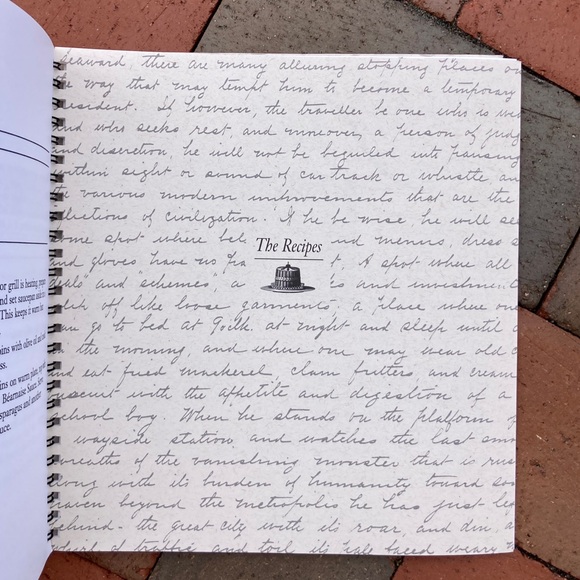 seaward, there are many alluring stopping places on
the way that may tempt him to become a temporary
resident. If however, the traveller be one who is
and who seeks rest, and moreover, a person of
and discretion, he will not be beguiled into pausing
within sight or sound of car track or whistle an
the various modern improvements that are the
of civilization. If he be wise, he will se
some spot where and menus, dress s
and gloves have no A spot where all
and "schemes", a and
off like loose garments, a place where one
can go to bed at 9 o'clk. at night and sleep until
in the morning, and where one may wear old c
and eat fried mackerel, clam fritters, and cream
with the appetite and digestion of a
school boy. When he stands on the platform
wayside station and watches the last
wreaths of the vanishing monster that is
along with its burden of humanity toward so
haven beyond the metropolis he has just le
behind - the great city with its roar, and din, a
of traffic and toil, its pale faced weary
The Recipes
or grill is heating,
and set saucepan
This keeps it warm
with olive oil and
on warm
Béarnaise Sauce.
asparagus and
uce.